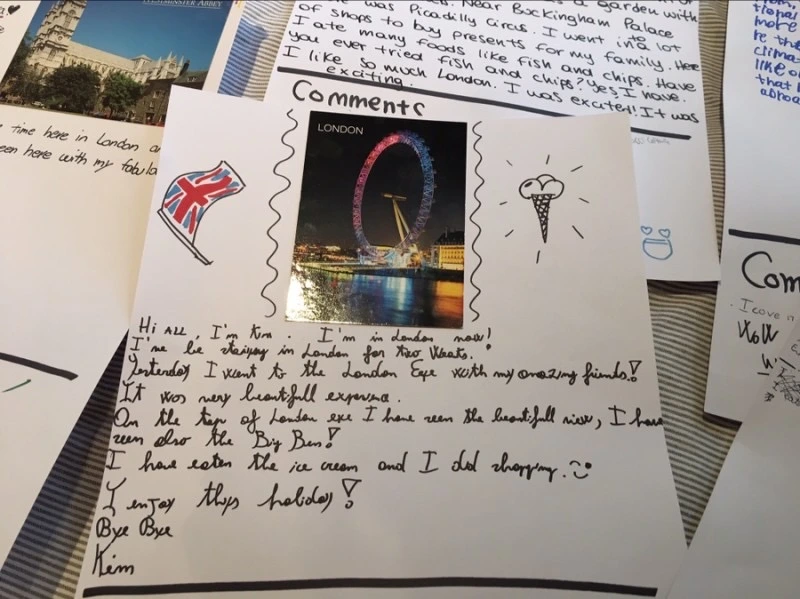 WESTMINSTER ABBEY
time here in London
een here with my fabula
garden with
was Picadilly Circus. Near Buckingham Palace
of shops to buy presents for my family. Here
I ate many foods like fish and chips. Have
you ever tried fish and chips? Yes, I have.
I like so much London. I was excited! It was
exciting.
Comments
LONDON
Hi ALL, I'm Kim. I'm in London now!
I'me be staying in London for two Weaks.
Yesterday I went to the London Eye with my amazing friends!
It was very beautifull experience.
On the top of London eye I have seen the beautifull view, I have
seen also the Big Ben!
I have eaten the ice cream and I did shopping.
I enjoy this holiday!
Bye Bye
Kim
tional
more
re th
climat
like o
that I
abroa
Com
I cove n
WoW